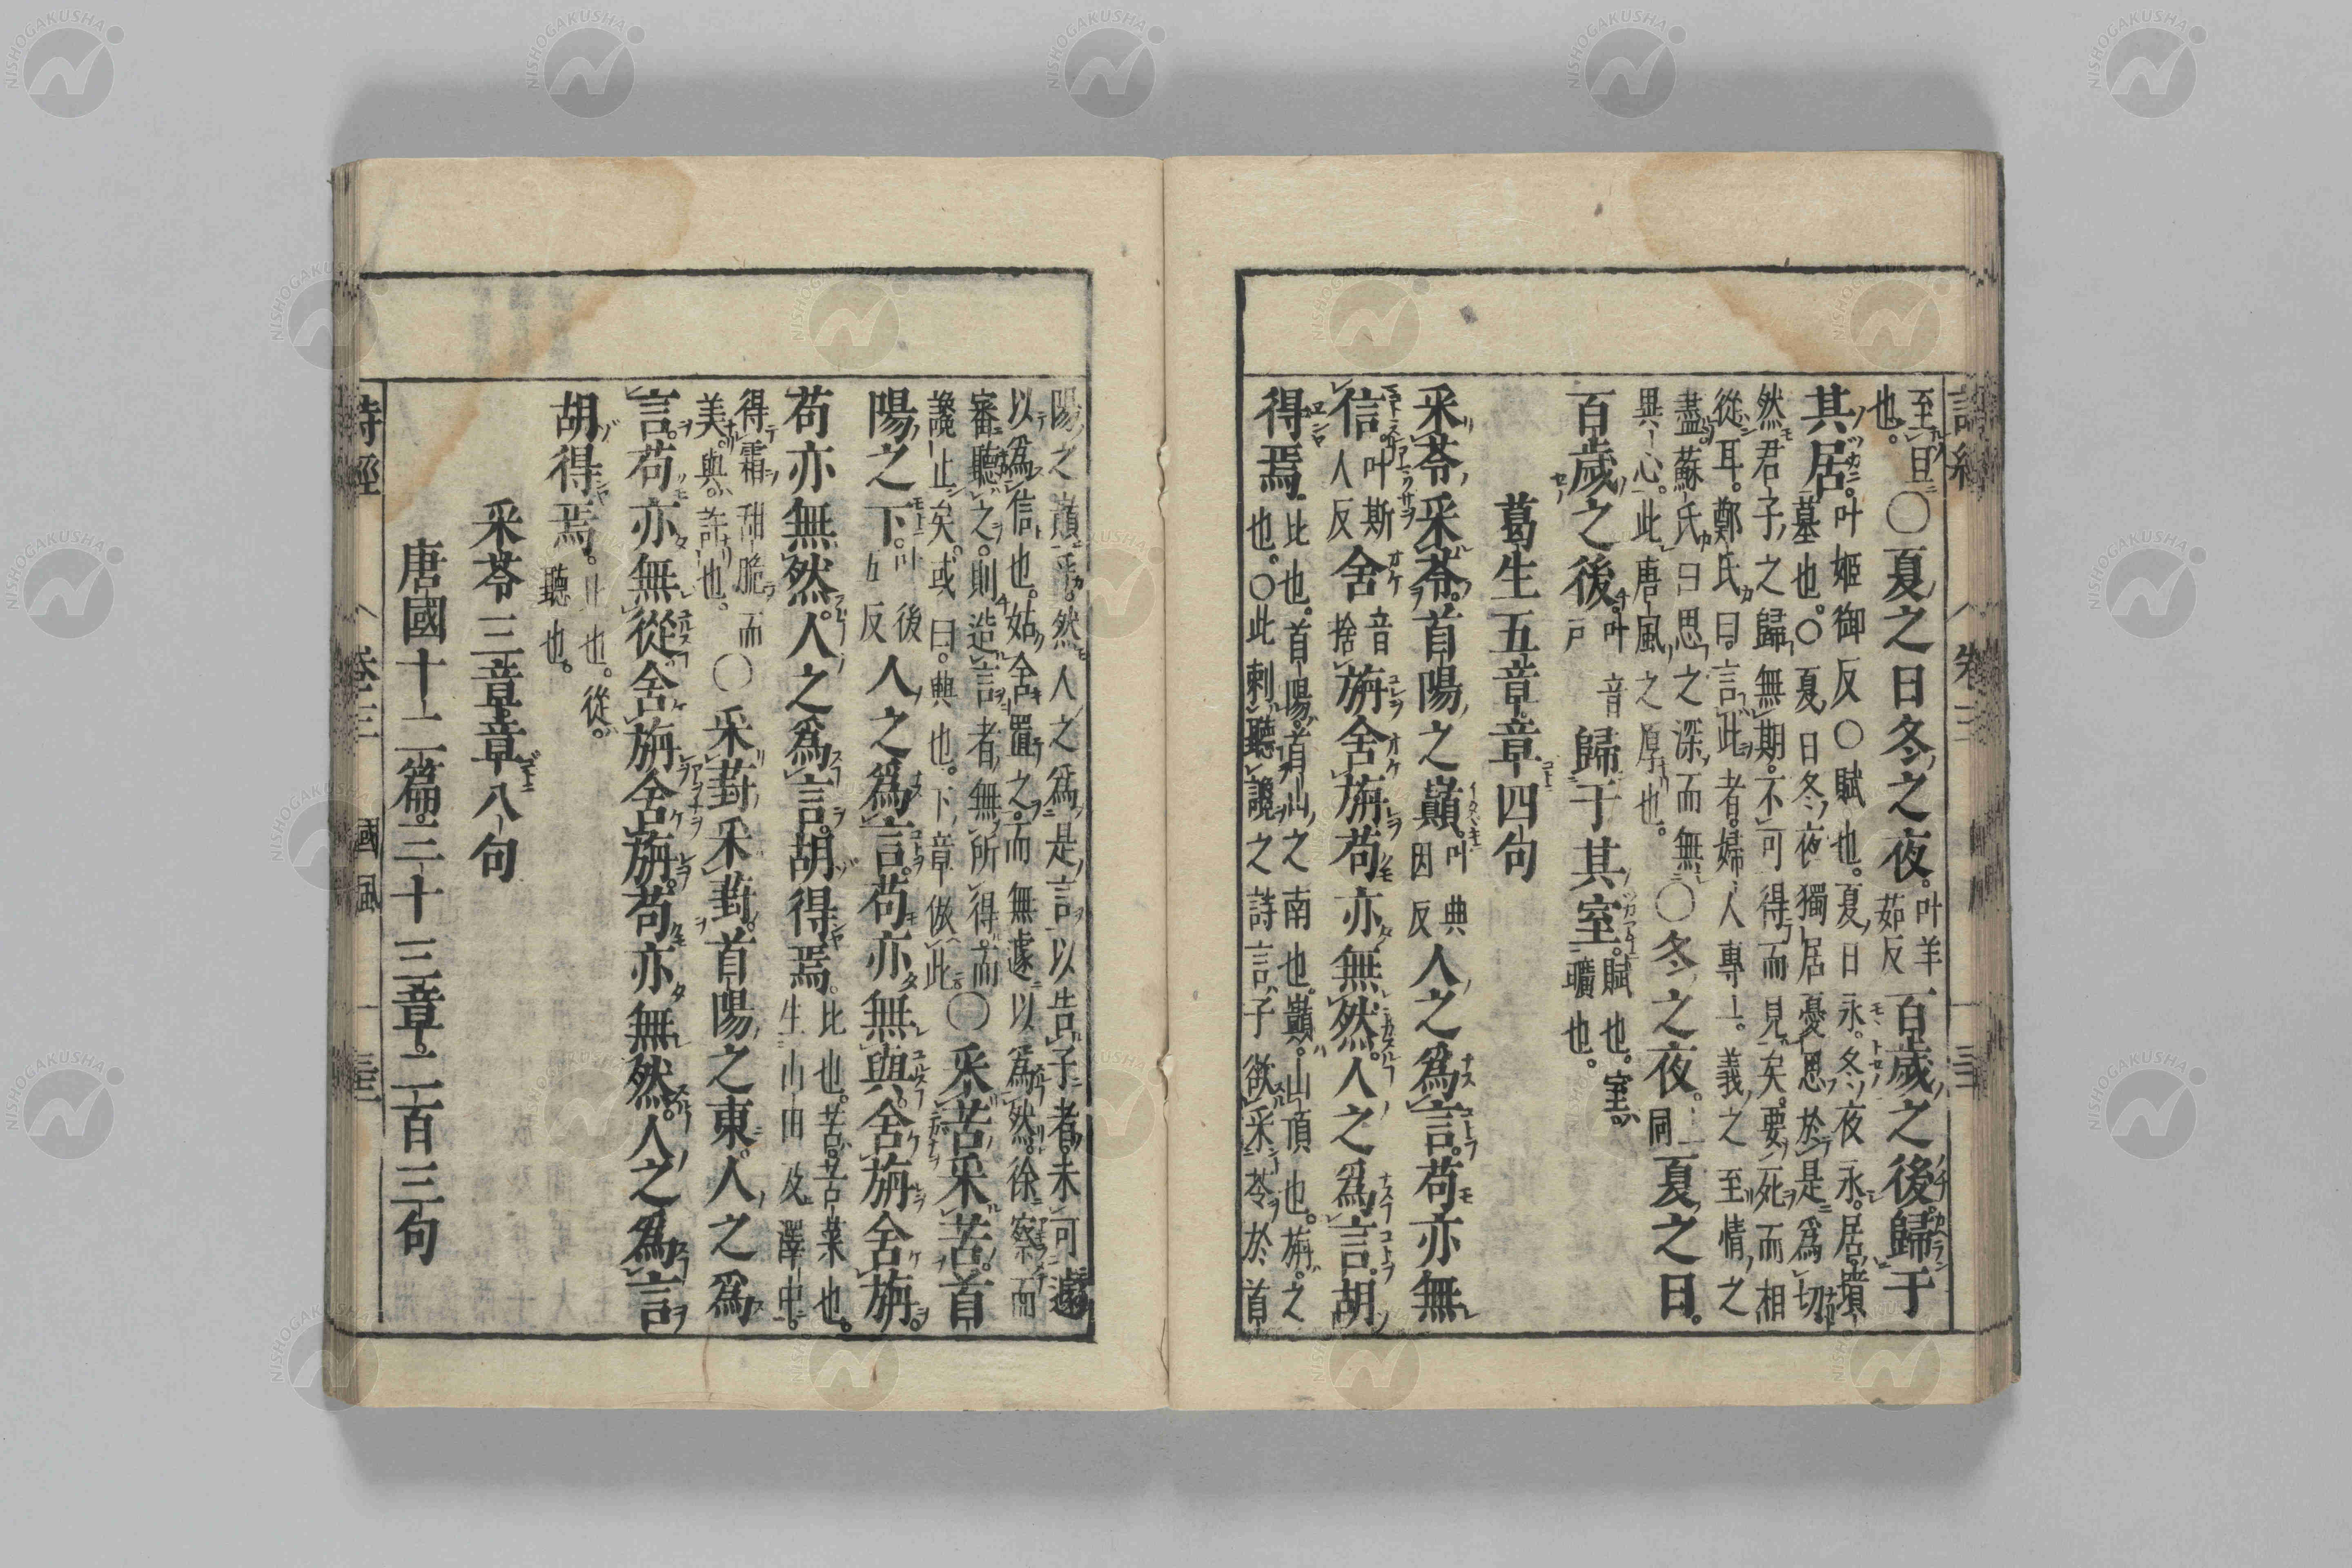 詩經 卷三 三
至旦
也。
〇夏之日冬之夜。叶羊茹反百歲之後。歸于
其居。
叶姬御反〇賦也。夏日永。冬夜永。居。墳
墓也。〇夏日冬夜獨居憂思於是爲切
然君子之歸無期。不可得而見矣。要死而相
從耳。鄭氏曰。言此者。婦人專一。義之至情之
盡。蘇氏曰思之深而無
異心。此唐風之厚也。
〇冬之夜。同上夏之日。
百歲之後。叶音戸歸于其室。賦也。室。壙也。
葛生五章章四句
采苓采苓。首陽之巔。叶典因反人之爲言。苟亦無
信。叶斯人反舍音捨旃舍旃苟亦無然。人之爲言。胡
得焉。
比也。首陽。首山之南也。巔。山頂也。旃。之
也。〇此刺聽讒之詩言子欲采苓於首
陽之巔乎。然人之爲是言以告子者。未可遽
以爲信也。姑舍置之。而無遽以爲然。徐察而
審聽之。則造言者無所得。而
讒止矣。或曰。興也。下章倣此。
〇采苦采苦。首
陽之下。叶後五反人之爲言。苟亦無與。舍旃舍旃。
苟亦無然。人之爲言。胡得焉。
比也。苦。苦菜也。
生山田及澤中。
得霜甜脆而
美。與。許也。
〇采葑采葑。首陽之東。人之爲
言。苟亦無從舍旃舍旃。苟亦無然。人之爲言
胡得焉。比也。從。聽也。
采苓三章章八句
唐國十二篇。三十三章。二百三句
詩經 卷三 國風 三
NISHOGAKUSHA